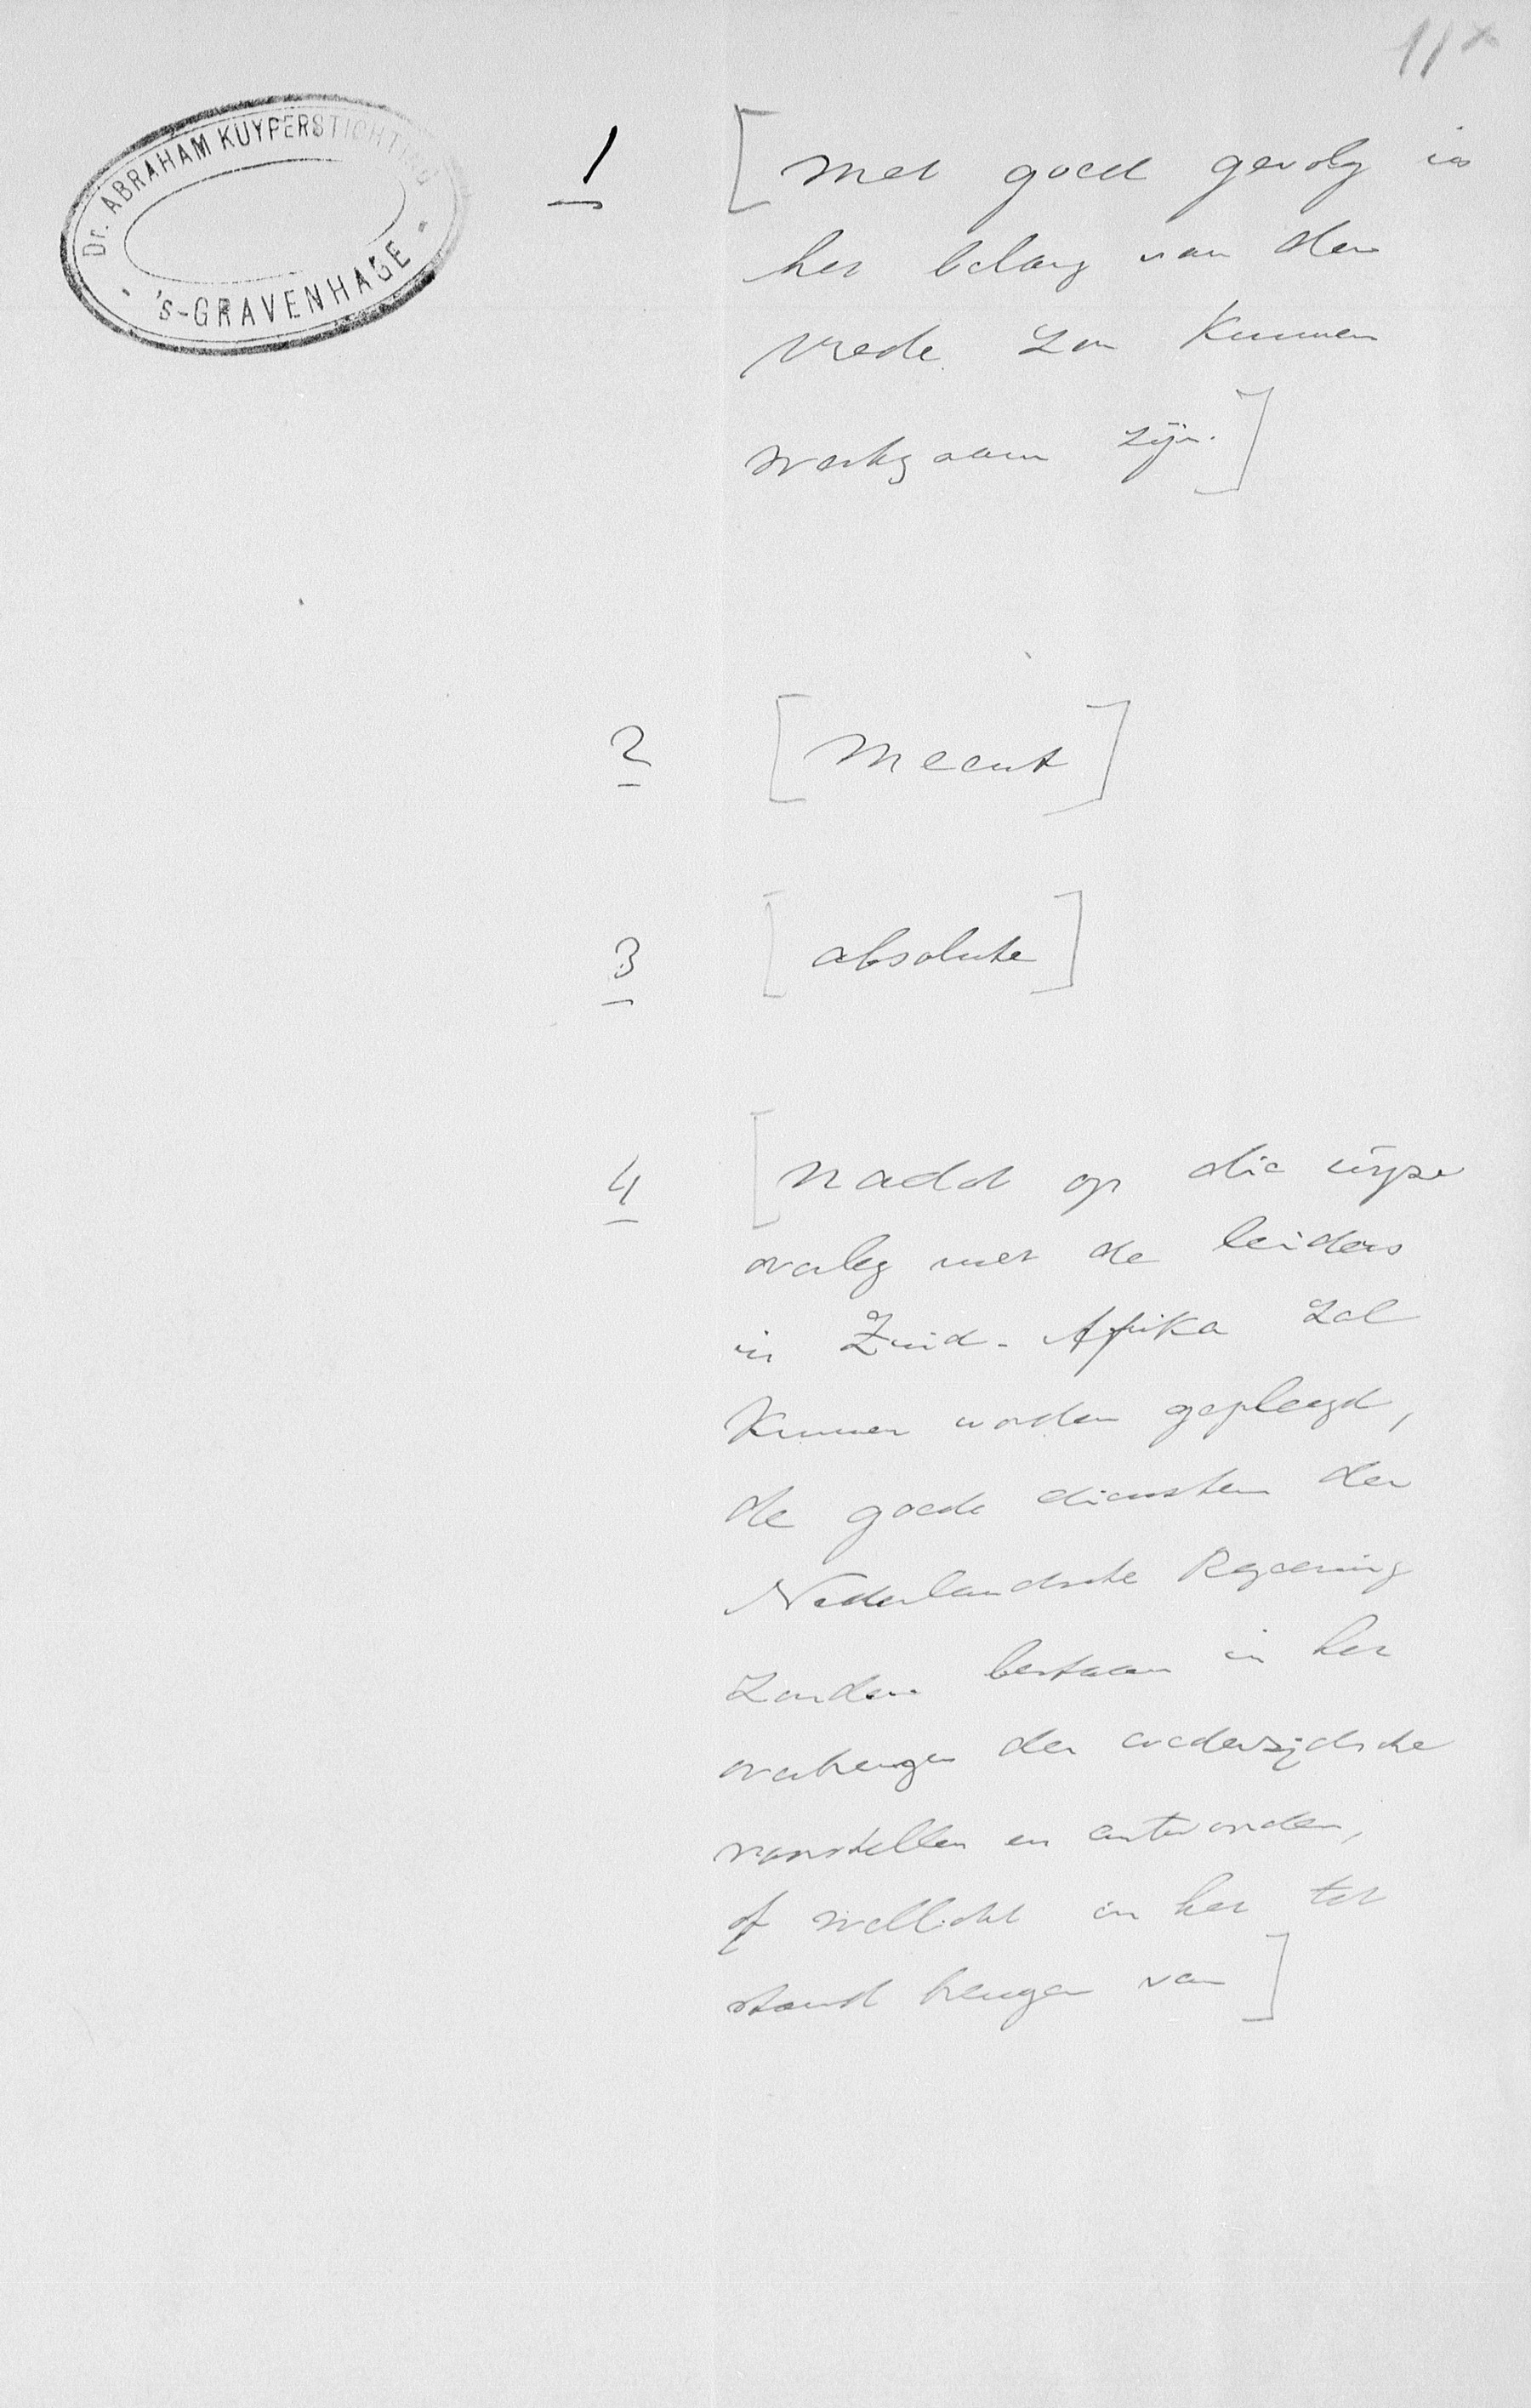 11x
Dr. ABRAHAM KUYPERSTICHTING
's-GRAVENHAGE
1 [met goed gevolg in
het belang van den
vrede zou kunnen
werkzaam zijn.]
2 [meent]
3 [absolute]
4 [nadat op die wijze
overleg met de leiders
in Zuid-Afrika zal
kunnen worden gepleegd,
de goede diensten der
Nederlandsche Regeering
zouden bestaan in het
overbrengen der wederzijdsche
voorstellen en antwoorden,
of wellicht in het tot
stand brengen van]